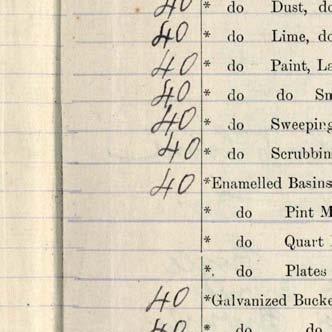 40 * do Dust, do
40 * do Lime, do
40 * do Paint, La
40 * do do Sm
40 * do Sweeping
40 * do Scrubbin
40 *Enamelled Basins
* do Pint M
* do Quart
* do Plates
40 *Galvanized Bucke
40 * do do